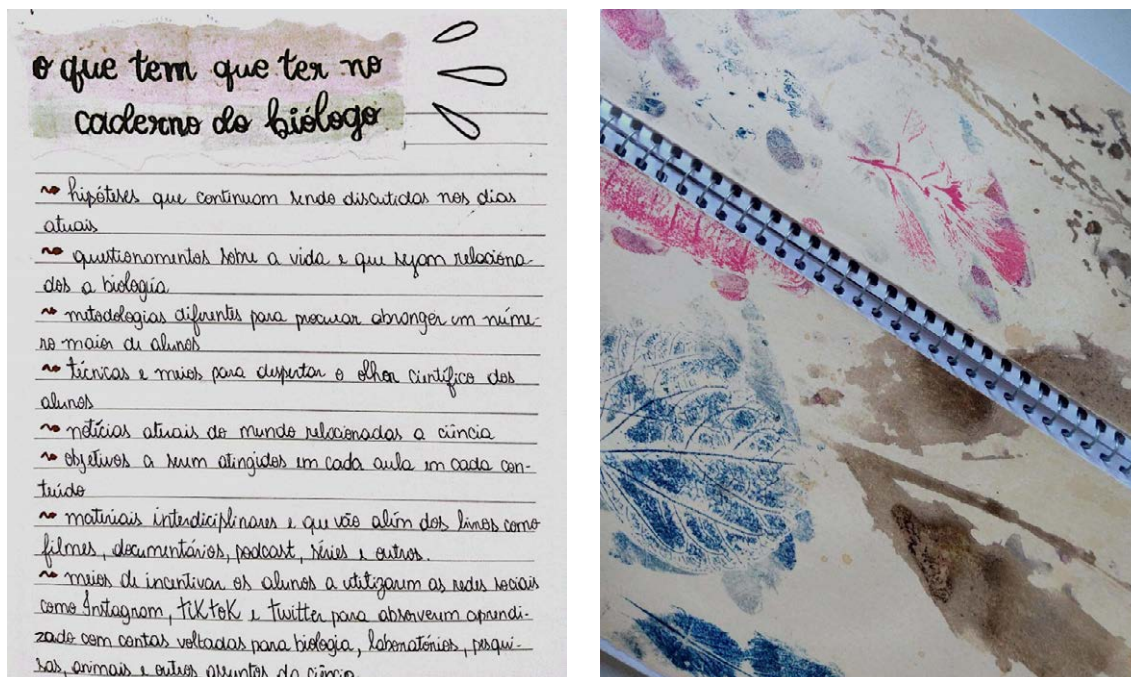 o que tem que ter no
caderno do biólogo
hipóteses que continuam sendo discutidas nos dias
atuais
questionamentos sobre a vida e que sejam relaciona-
dos a biologia
metodologias diferentes para procurar abranger um núme-
ro maior de alunos
técnicas e meios para despertar o olhar científico dos
alunos
notícias atuais do mundo relacionadas a ciência
objetivos a serem atingidos em cada aula em cada con-
teúdo
materiais interdiciplinares e que vão além dos livros como
filmes, documentários, podcast, séries e outros.
meios de incentivar os alunos a utilizarem as redes sociais
como Instagram, tiktok e twitter para absorverem aprendi-
zado com contas voltadas para biologia, laboratórios, pesqui-
sas, animais e outros assuntos da ciência